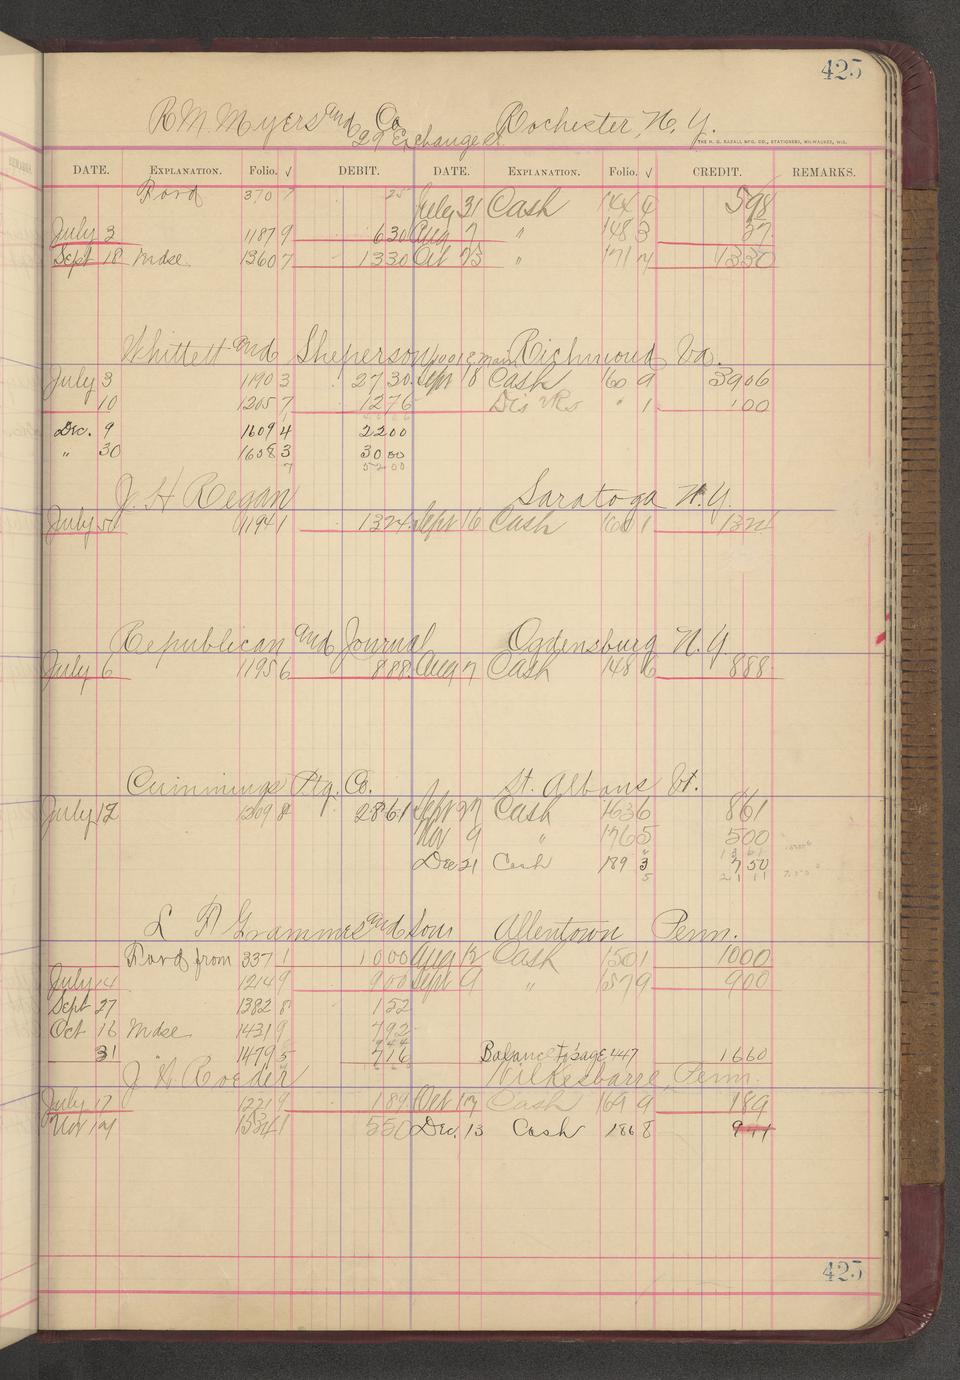 425
R M. Myers and Co. Rochester, N. Y.
29 Exchange st.
THE H. G. RAZALL MFG. CO., STATIONERS, MILWAUKEE, WIS.
DATE. EXPLANATION. Folio. √ DEBIT. DATE. EXPLANATION. Folio. √ CREDIT. REMARKS.
Ford 370 7 25 July 31 Cash 144 4 598
July 3 1187 9 630 Aug 7 " 148 3 37
Sept 18 Mdse 1360 7 1330 Oct 23 " 171 7 1330
Whittett and Sheperson 1001 E Main Richmond Va.
July 3 1190 3 2730 Sept 18 Cash 160 9 3906
10 1205 7 1276 Dis " 1 100
Dec. 9 1609 4 2200
" 30 1658 3 3000
5200
J. H Regan Saratoga N.Y.
July 1194 1 1324 Sept 16 Cash 160 1 1324
Republican and Journal Ogdensburg N.Y.
July 6 1195 6 888 Aug 7 Cash 148 6 888
Cummings Ptg. Co. St. Albans Vt.
July 12 1209 8 2861 Sept 27 Cash 163 6 861
Nov 9 " 176 5 500
1361
Dec 21 Cash 189 3 750
2111
L F Grammes and Sons Allentown Penn.
Ford from 337 1 1000 Aug 12 Cash 150 1 1000
July 14 1214 9 900 Sept 9 " 157 9 900
Sept 27 1382 8 152
Oct 16 Mdse 1431 9 792
31 1479 5 716 Balance To page 447 1660
J. H. Roeder Wilkesbarre, Penn.
July 17 1221 9 189 Oct 17 Cash 169 9 189
Nov 14 1534 1 550 Dec. 13 Cash 186 8 941
425